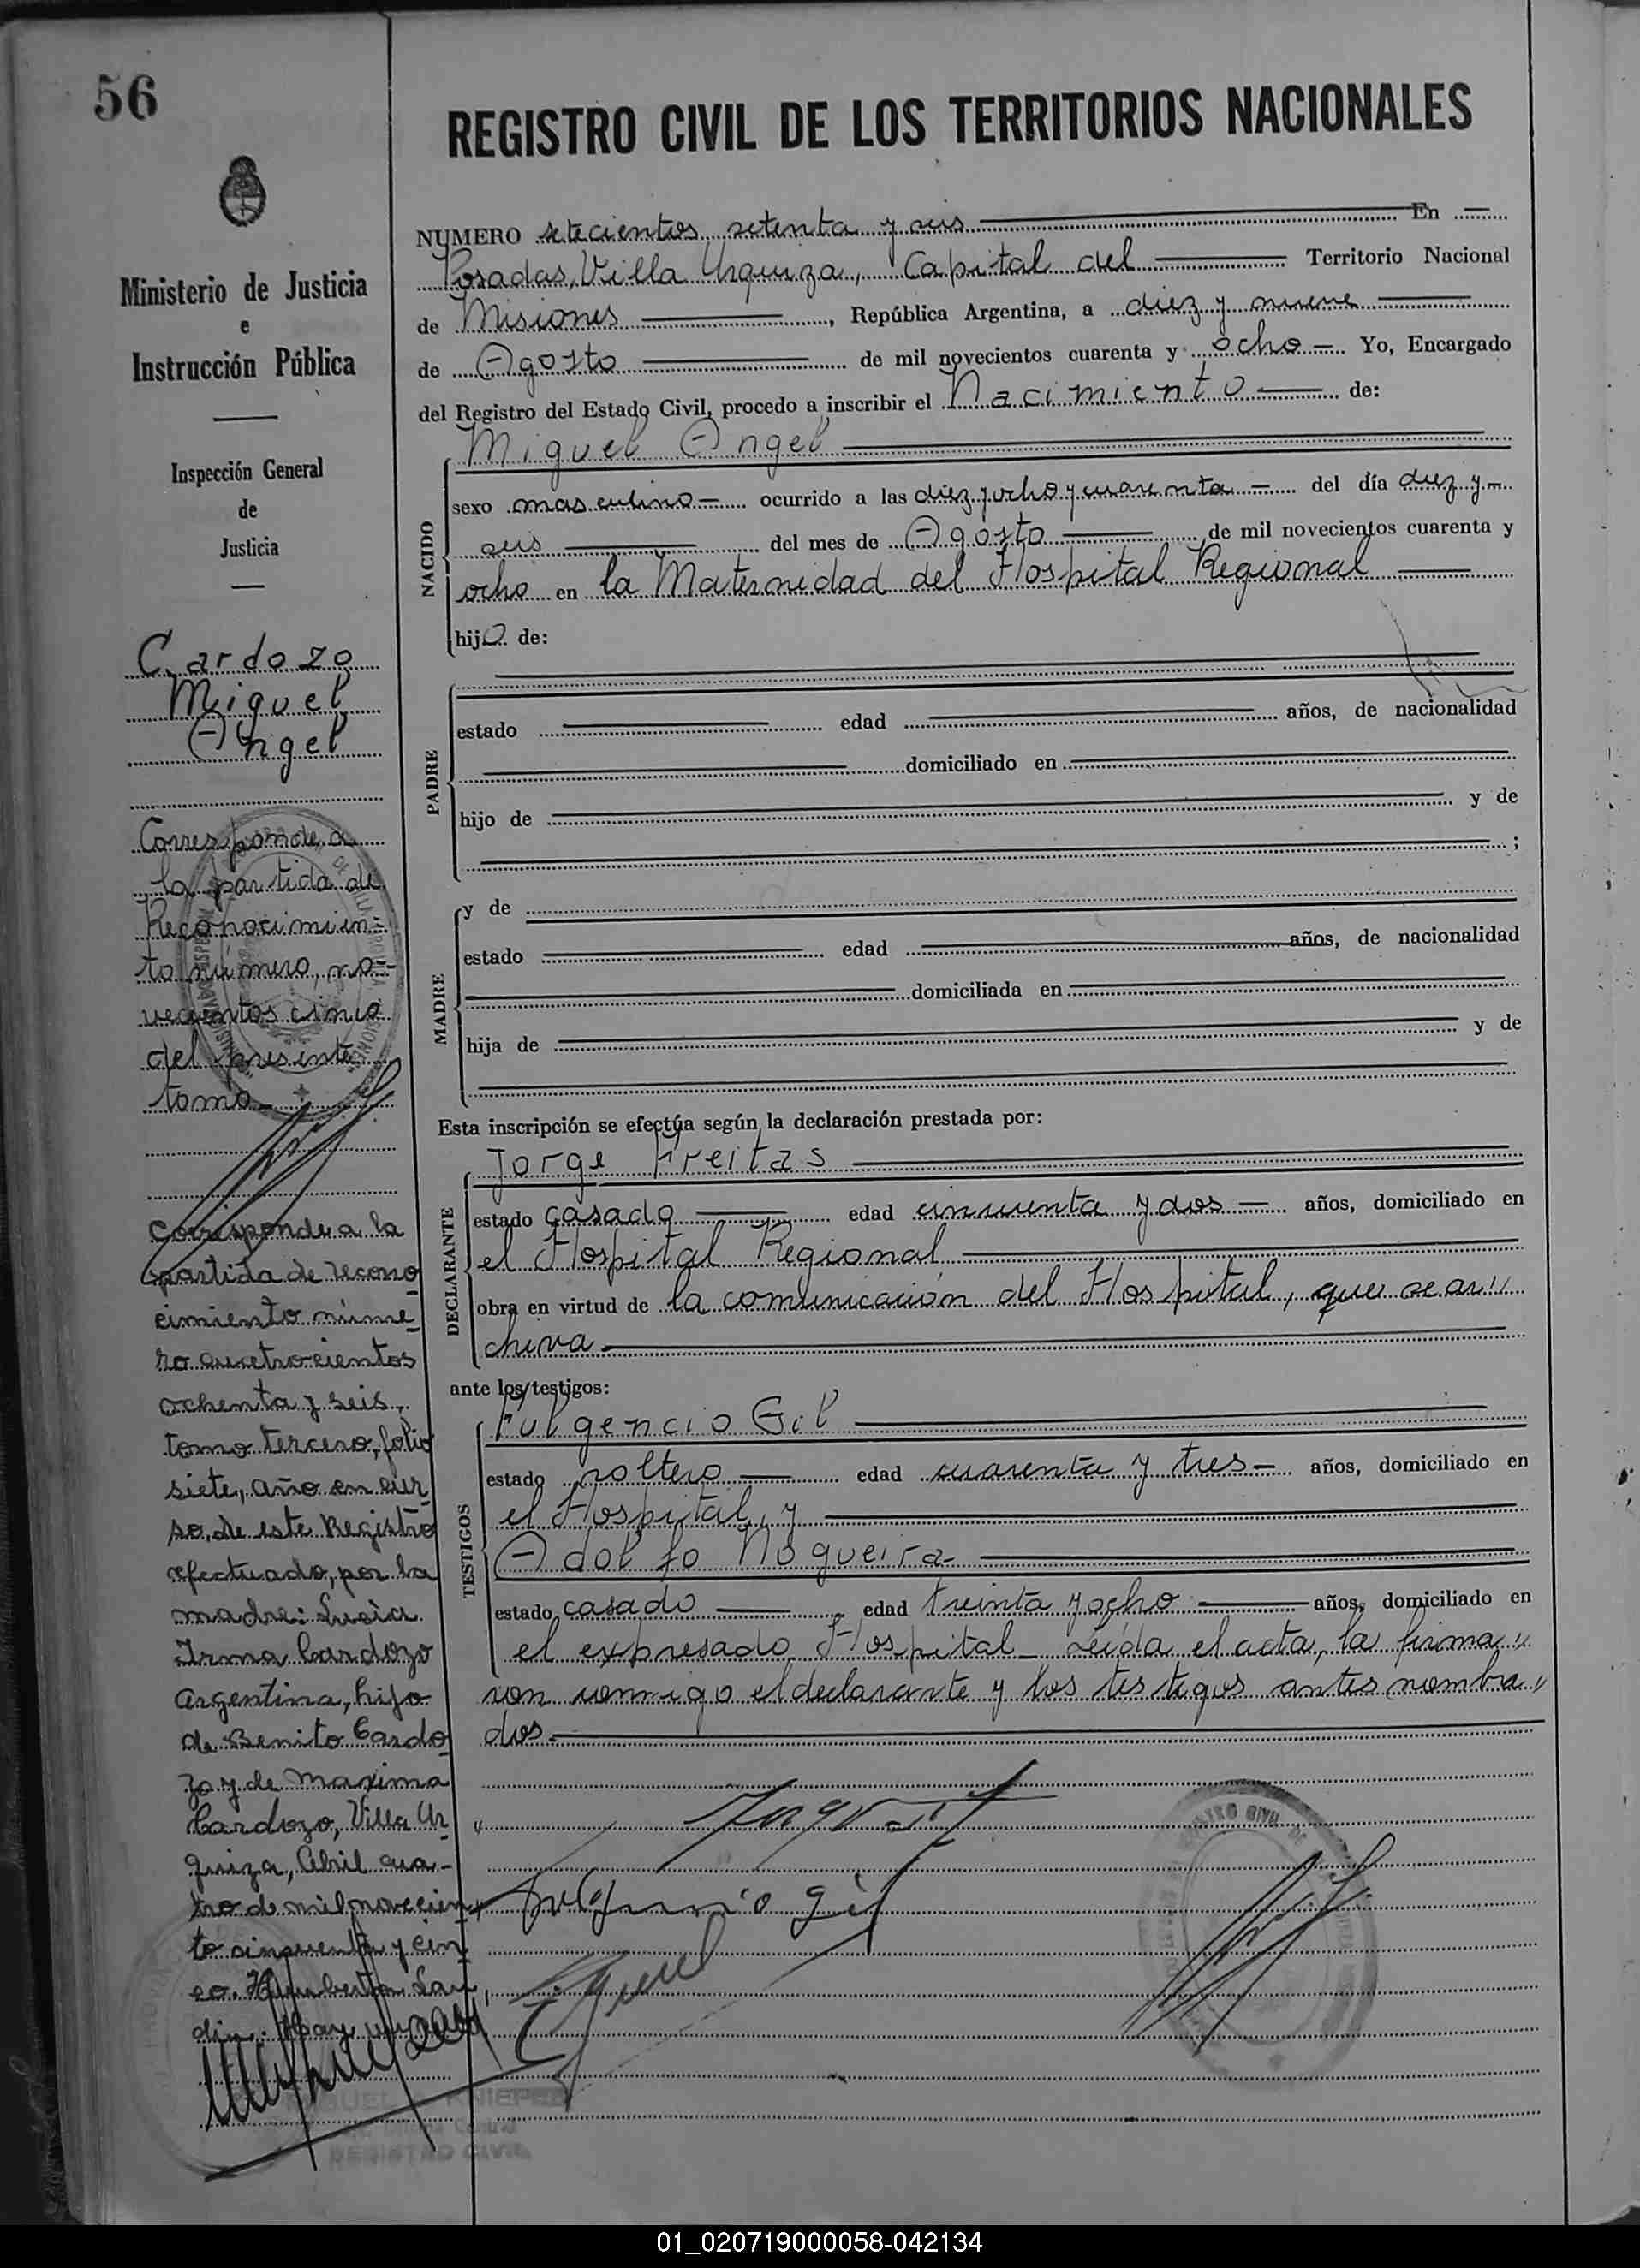 56
REGISTRO CIVIL DE LOS TERRITORIOS NACIONALES
Ministerio de Justicia
e
Instrucción Pública
Inspección General
de
Justicia
Cardozo
Miguel
Angel
Corresponde a
la partida de
Reconocimien-
to número, no-
vecientos cinco
del presente
tomo
Corresponde a la
partida de recono
cimiento núme
ro cuatrocientos
ochenta y seis,
tomo tercero, folio
siete, año en cur
so, de este Registro
efectuado, por la
madre: Lucía
Irma Cardozo
argentina, hija
de Benito Cardo
zo y de Maxima
Cardozo, Villa Ur
quiza, Abril cua-
tro de mil novecien
to cinquenta y cin
co.
NUMERO setecientos setenta y seis En
Posadas, Villa Urquiza, Capital del Territorio Nacional
de Misiones, República Argentina, a diez y nueve
de Agosto de mil novecientos cuarenta y ocho Yo, Encargado
del Registro del Estado Civil, procedo a inscribir el Nacimiento de:
NACIDO
Miguel Angel
sexo masculino ocurrido a las diez y ocho y cuarenta del día diez y
seis del mes de Agosto de mil novecientos cuarenta y
ocho en la Maternidad del Hospital Regional
hijo de:
PADRE
estado edad años, de nacionalidad
domiciliado en
hijo de y de
;
MADRE
y de
estado edad años, de nacionalidad
domiciliada en
hija de y de
Esta inscripción se efectúa según la declaración prestada por:
DECLARANTE
Jorge Freitas
estado casado edad cincuenta y dos años, domiciliado en
el Hospital Regional
obra en virtud de la comunicación del Hospital, que se ar"
chiva
ante los testigos:
TESTIGOS
Fulgencio Gil
estado soltero edad cuarenta y tres años, domiciliado en
el Hospital, y
Adolfo Nogueira
estado casado edad treinta y ocho años, domiciliado en
el expresado Hospital Leída el acta, la firma"
ron conmigo el declarante y los testigos antes nombra"
dos.
Fulgencio Gil
REGISTRO CIVIL
01_020719000058-042134